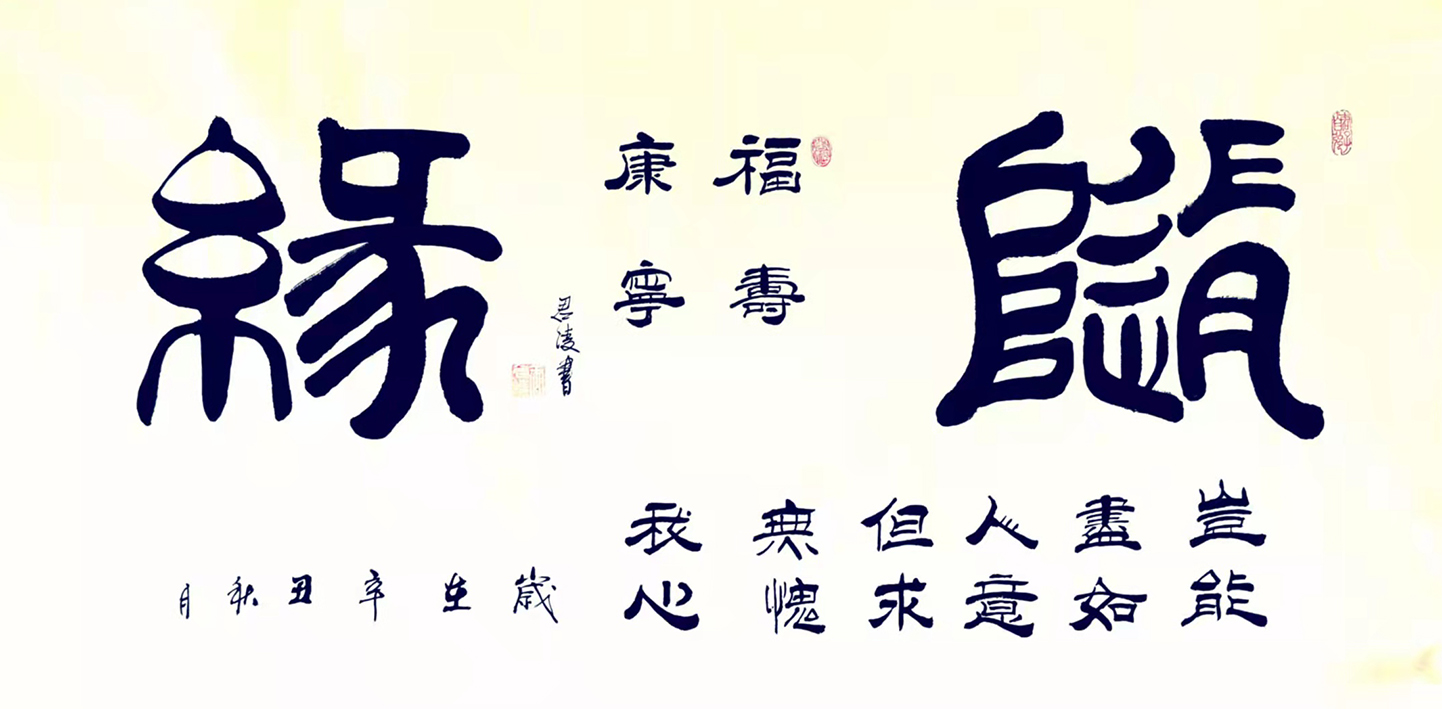 隨緣
福壽
康寧
豈能盡如人意但求無愧我心
歲在辛丑秋月
凌書